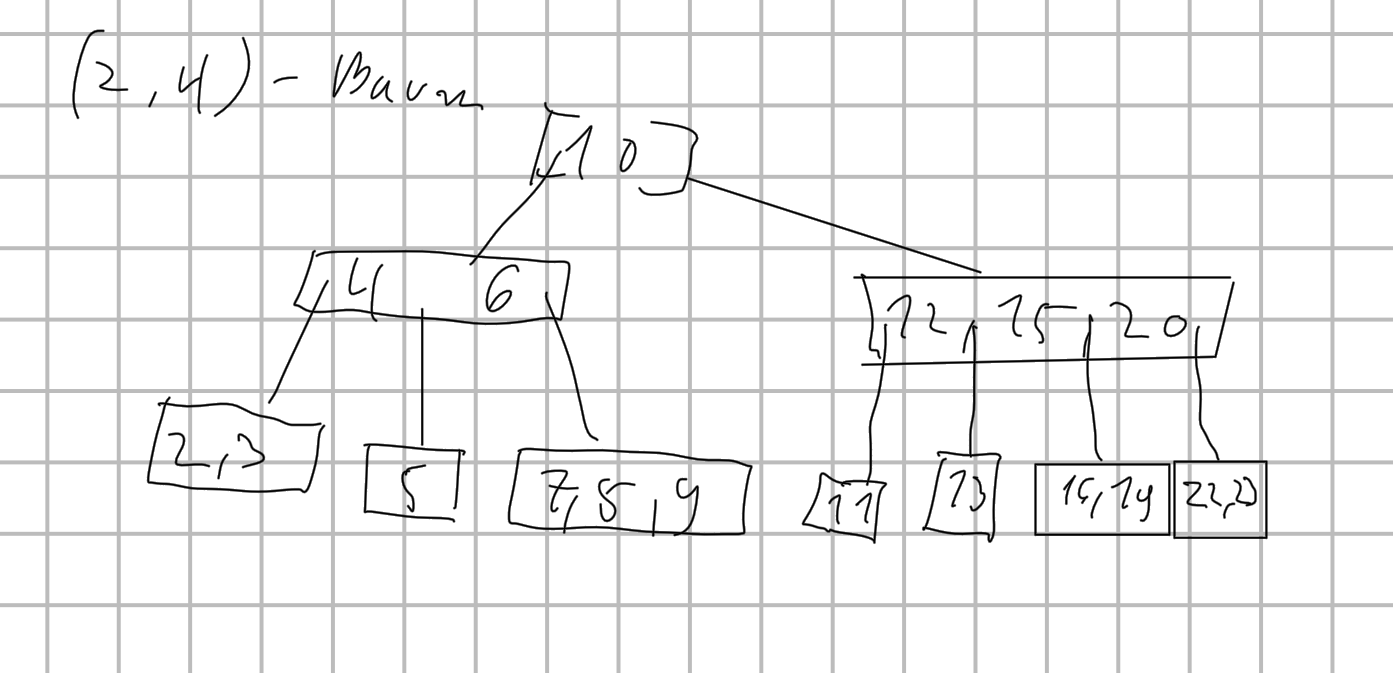 (2,4) - Baum
10
4 6
12, 15, 20
2,3
5
7,8,9
11
13
19
22,23